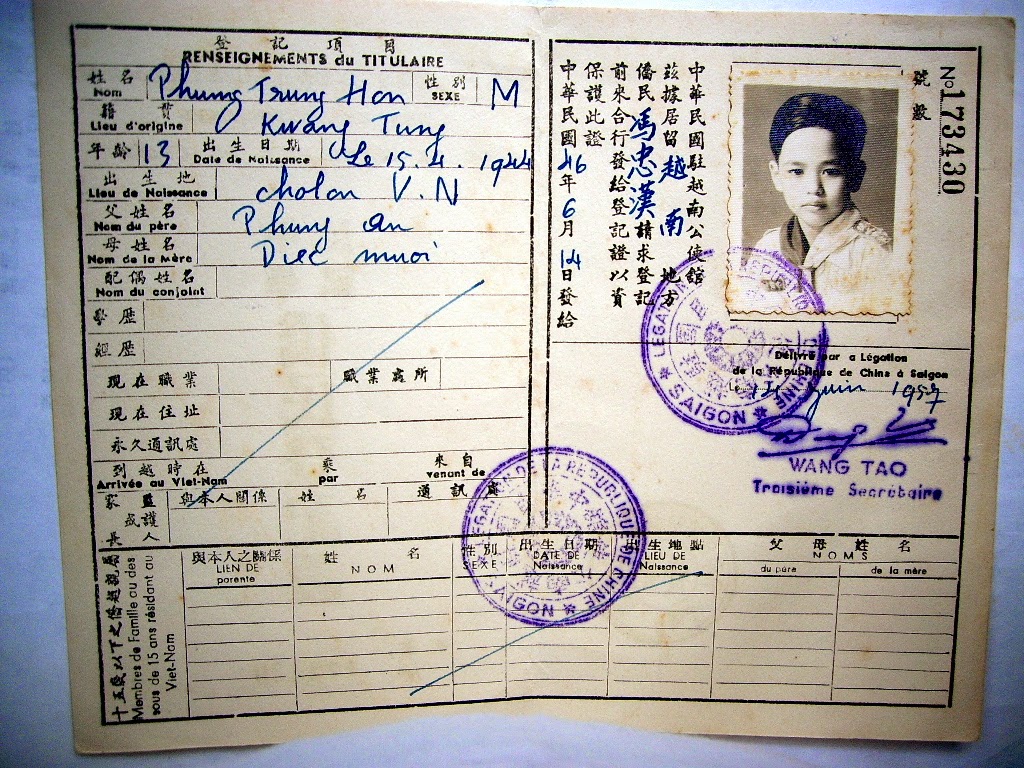 登記項目
RENSEIGNEMENTS du TITULAIRE
姓名 Nom Phung Trung Hon 性別 SEXE M
籍貫 Lieu d'origine Kwang Tung
年齡 13 出生日期 Date de Naissance Le 15.4.1944
出生地 Lieu de Naissance cholon V.N
父姓名 Nom du père Phung an
母姓名 Nom de la Mère Diec muoi
配偶姓名 Nom du conjoint
學歷
經歷
現在職業 職業處所
現在住址
永久通訊處
到越時在 乘 來自
Arrivée au Viet-Nam par venant de
家長或監護人 與本人關係 姓名 通訊處
十五歲以下之僑越親屬
Membres de Famille au des sous de 15 ans résidant au Viet-Nam
與本人之關係 LIEN DE parente
姓名 NOM
性別 SEXE
出生日期 DATE DE Naissance
出生地點 LIEU DE Naissance
父母姓名 NOMS
du père de la mère
號數 No 173430
中華民國駐越南公使館
茲據居留越南地方
僑民馮忠漢請求登記
前來合行發給登記證以資
保護此證
中華民國46年6月14日發給
Délivré par a Légation
de la République de Chine à Saigon
Le 14 juin 1957
WANG TAO
Troisième Secrétaire
LÉGATION DE LA RÉPUBLIQUE DE CHINE
SAIGON
LÉGATION DE LA RÉPUBLIQUE DE CHINE
SAIGON